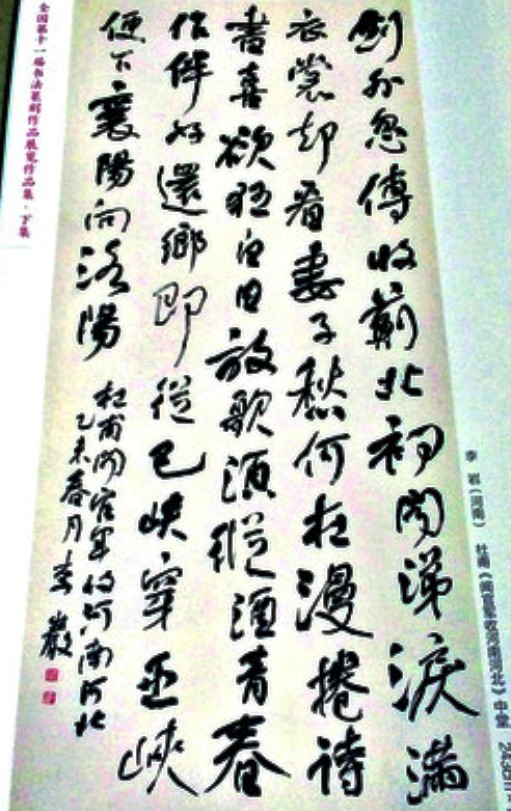 劍外忽傳收薊北初聞涕淚滿
衣裳却看妻子愁何在漫捲詩
書喜欲狂白日放歌須縱酒青春
作伴好還鄉即從巴峽穿巫峽
便下襄陽向洛陽
杜甫聞官軍收河南河北
乙未春月李巖
全国第十一届书法篆刻作品展览作品集·下集
李 岩（河南） 杜甫《闻官军收河南河北》中堂